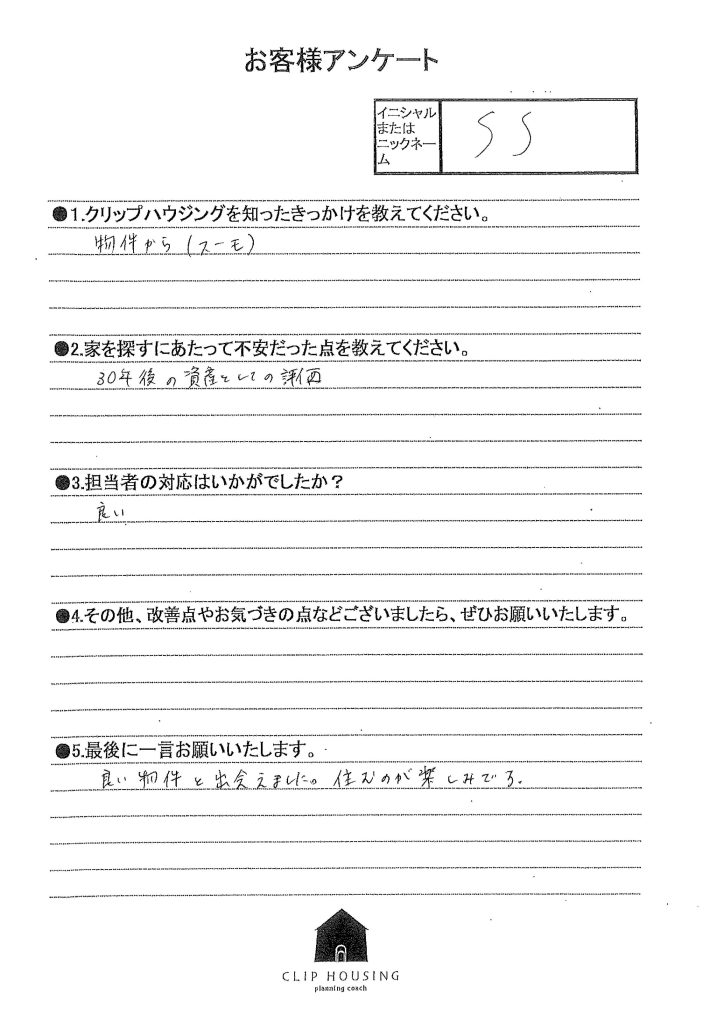 お客様アンケート
イニシャル
または
ニックネー
ム
SS
●1.クリップハウジングを知ったきっかけを教えてください。
物件から(スーモ)
●2.家を探すにあたって不安だった点を教えてください。
30年後の資産としての評価
●3.担当者の対応はいかがでしたか？
良い
●4.その他、改善点やお気づきの点などございましたら、ぜひお願いいたします。
●5.最後に一言お願いいたします。
良い物件と出会えました。住むのが楽しみです。
CLIP HOUSING
planning coach